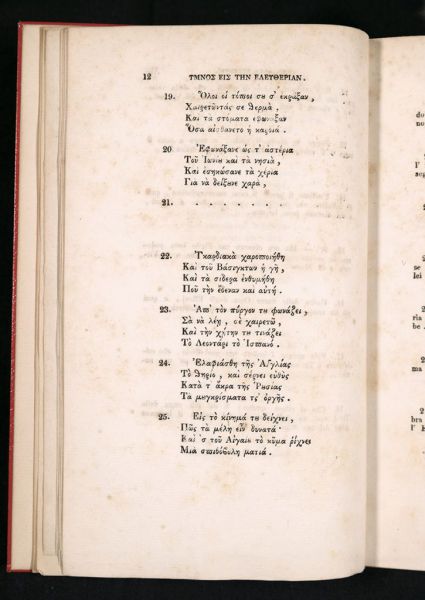 12 ΥΜΝΟΣ ΕΙΣ ΤΗΝ ΕΛΕΥΘΕΡΙΑΝ.
19. Ὅλοι οἱ τόποι σȣ σ' ἔκραξαν,
Χαιρετῶντάς σε θερμὰ,
Καὶ τὰ στόματα ἐφώναξαν
Ὅσα αἰσθάνετο ἡ καρδιά.
20 Ἐφωνάξανε ὡς τ' ἀστέρια
Τοῦ Ἰονίȣ καὶ τὰ νησιὰ,
Καὶ ἐσηκώσανε τὰ χέρια
Γιὰ νὰ δείξȣνε χαρὰ,
21. . . . . . . .
22. Γκαρδιακὰ χαροποιήθη
Καὶ τοῦ Βάσιγκτων ἡ γῆ,
Καὶ τὰ σίδερα ἐνθυμήθη
Ποῦ τὴν ἔδεναν καὶ αὐτή.
23. Ἀπ' τὸν πύργον τȣ φωνάζει,
Σὰ νὰ λέῃ, σὲ χαιρετῶ,
Καὶ τὴν χῄτην τȣ τινάζει
Τὸ Λεοντάρι τὸ Ἱσπανό.
24. Ἐλαφιάσθη τῆς Ἀγγλίας
Τὸ θηρίο, καὶ σέρνει εὐθὺς
Κατὰ τ' ἄκρα τῆς Ρȣσίας
Τὰ μȣγκρίσματα τς' ὀργῆς.
25. Εἰς τὸ κίνημά τȣ δείχνει,
Πῶς τὰ μέλη εἶν δυνατά·
Καὶ 'ς τοῦ Αἰγαίȣ τὸ κῦμα ρίχνει
Μιὰ σπιθόβολη ματιά.